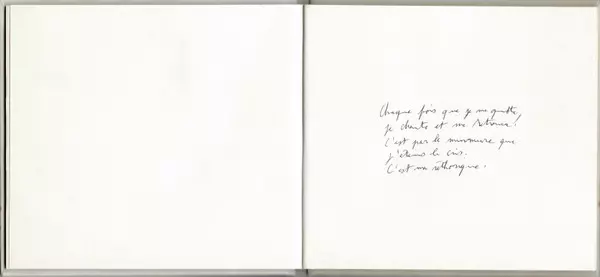 Chaque fois que je me quitte,
je chante et me retrouve!
C'est par le murmure que
j'éteins le cris.
C'est ma réthorique.